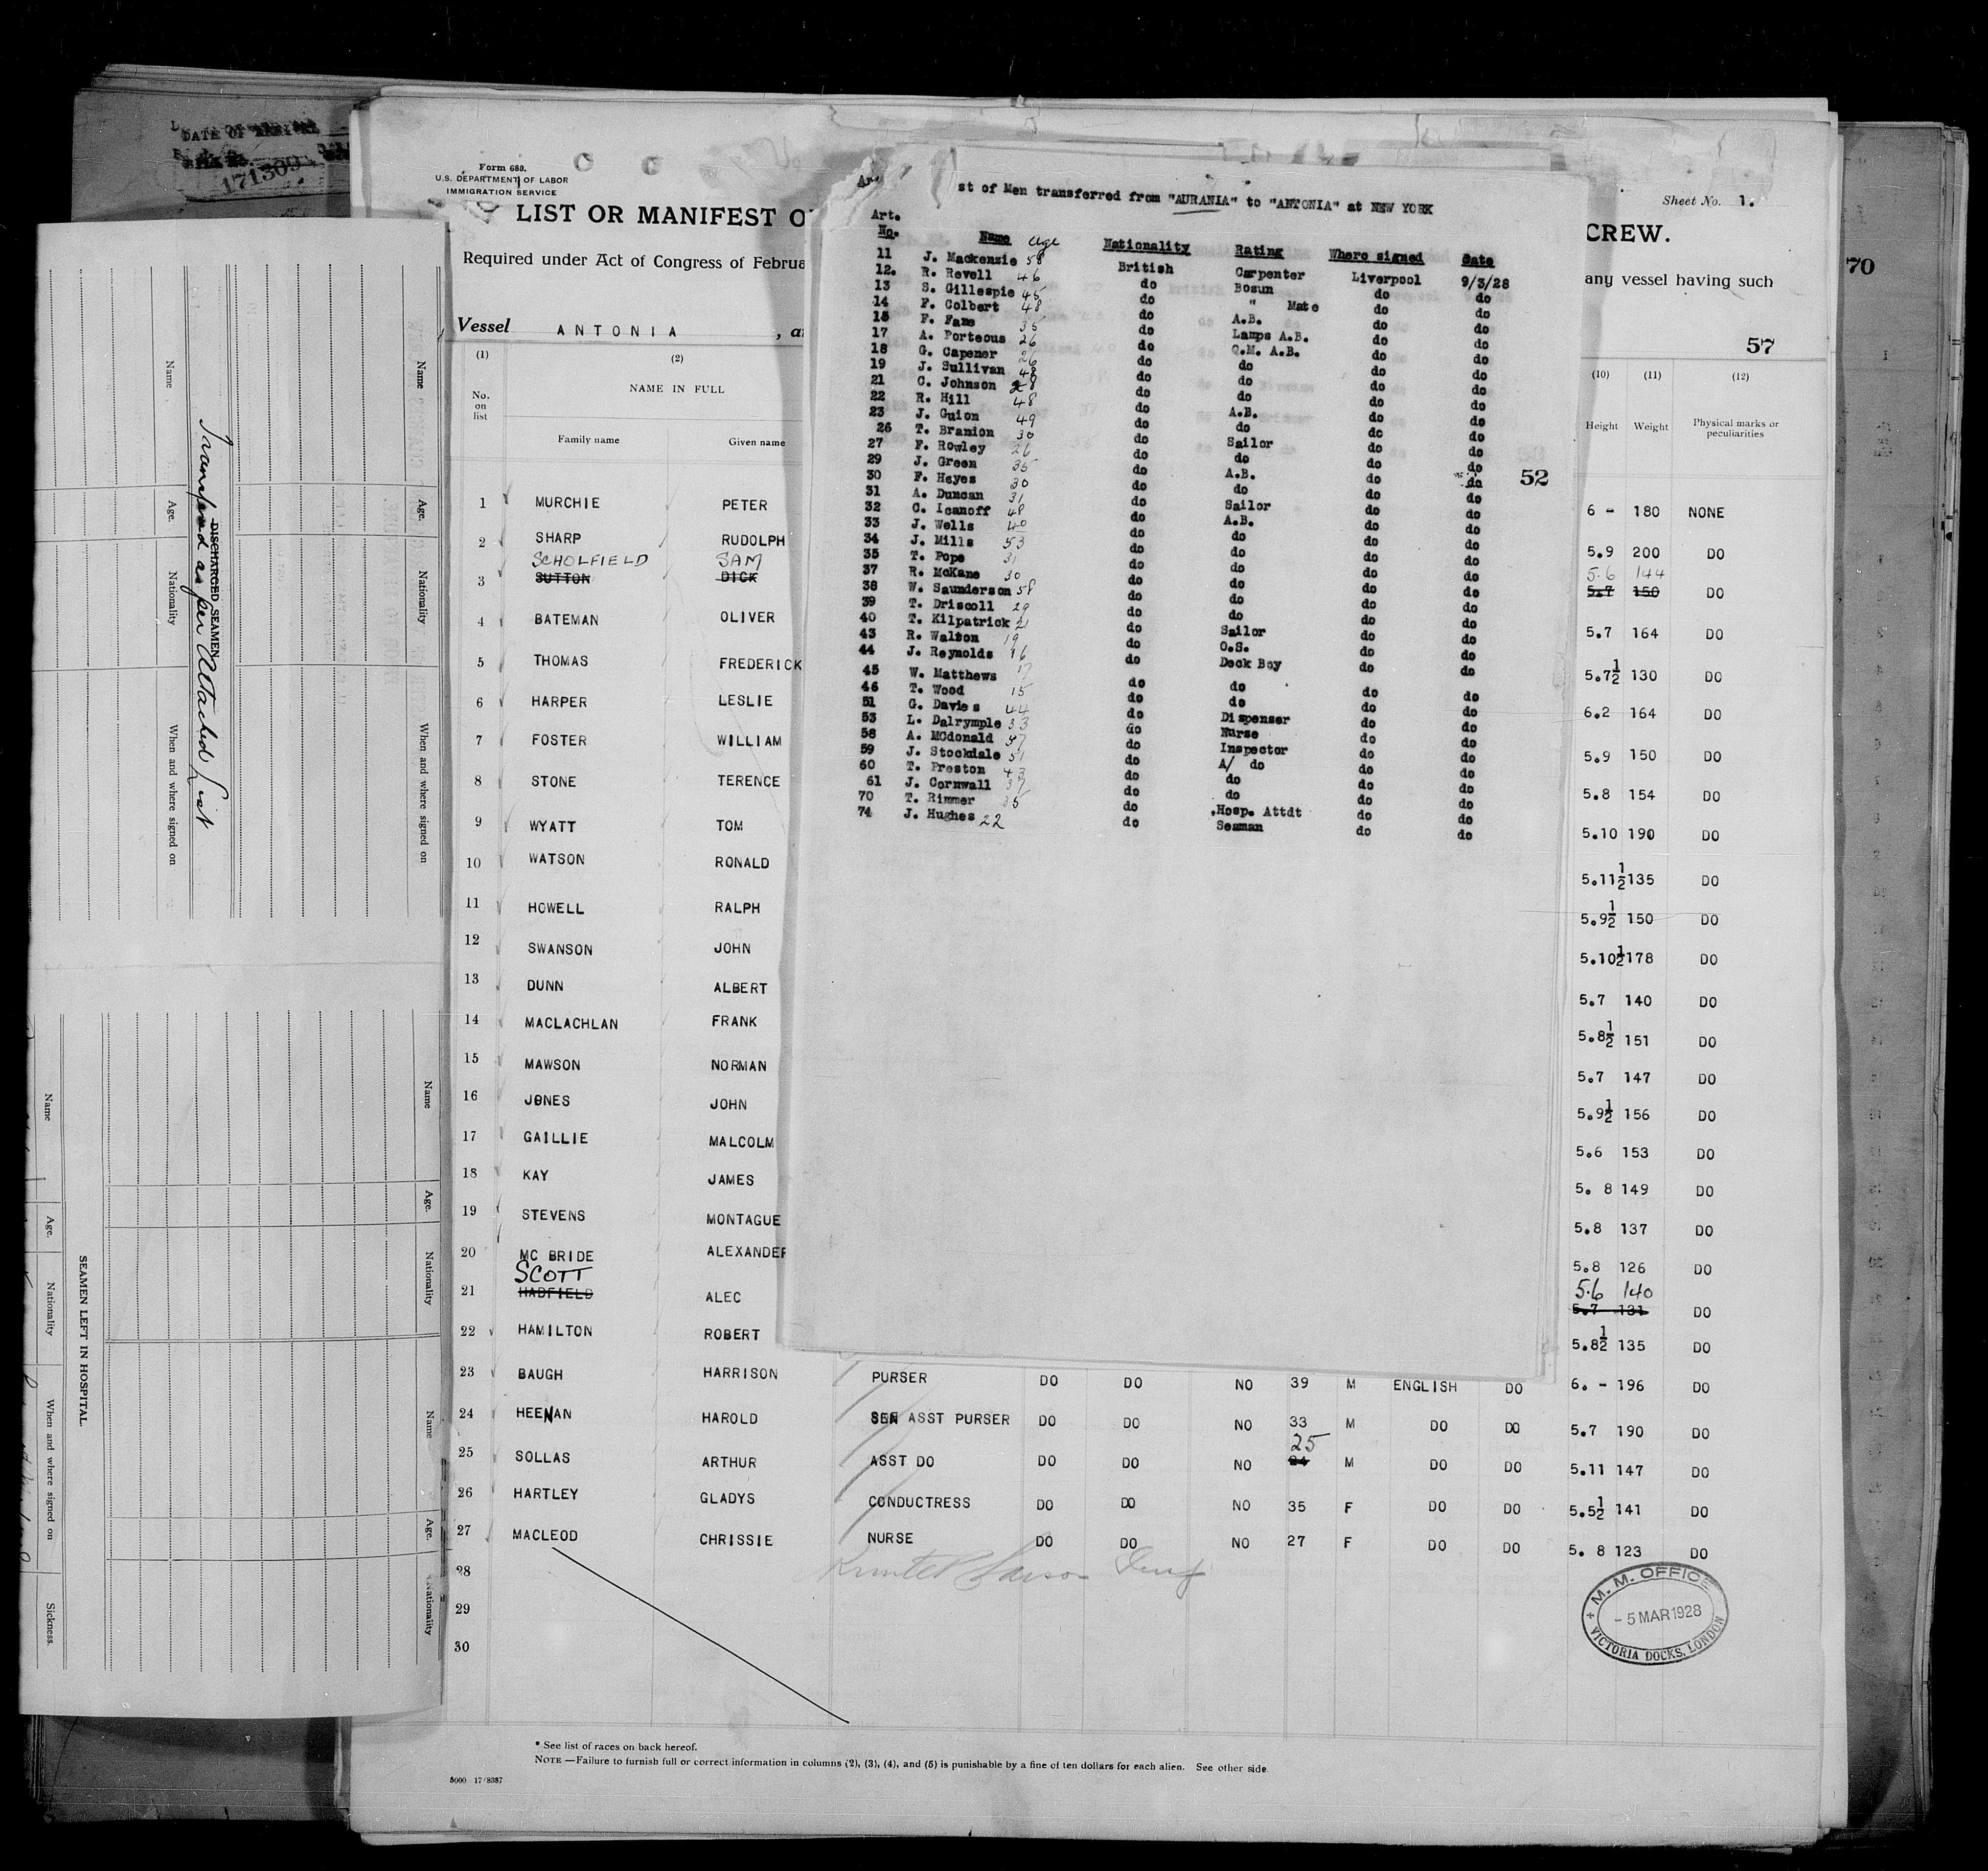 DATE OF ARRIVAL
171309
Form 680.
U.S. DEPARTMENT OF LABOR
IMMIGRATION SERVICE
LIST OR MANIFEST O
CREW.
Sheet No. 1.
Required under Act of Congress of Februa
any vessel having such
70
Vessel ANTONIA
57
(1) (2) (10) (11) (12)
No. on list NAME IN FULL Height Weight Physical marks or peculiarities
Family name Given name
1 MURCHIE PETER 6 - 180 NONE
2 SHARP RUDOLPH 5.9 200 DO
SCHOLFIELD SAM 5.6 144
3 SUTTON DICK 5.7 150 DO
4 BATEMAN OLIVER 5.7 164 DO
5 THOMAS FREDERICK 5.7½ 130 DO
6 HARPER LESLIE 6.2 164 DO
7 FOSTER WILLIAM 5.9 150 DO
8 STONE TERENCE 5.8 154 DO
9 WYATT TOM 5.10 190 DO
10 WATSON RONALD 5.11½ 135 DO
11 HOWELL RALPH 5.9½ 150 DO
12 SWANSON JOHN 5.10½ 178 DO
13 DUNN ALBERT 5.7 140 DO
14 MACLACHLAN FRANK 5.8½ 151 DO
15 MAWSON NORMAN 5.7 147 DO
16 JONES JOHN 5.9½ 156 DO
17 GAILLIE MALCOLM 5.6 153 DO
18 KAY JAMES 5. 8 149 DO
19 STEVENS MONTAGUE 5.8 137 DO
20 MC BRIDE ALEXANDER 5.8 126 DO
SCOTT 5.6 140
21 HADFIELD ALEC 5.7 131 DO
22 HAMILTON ROBERT 5.8½ 135 DO
23 BAUGH HARRISON PURSER DO DO NO 39 M ENGLISH DO 6. - 196 DO
24 HEENAN HAROLD SEN ASST PURSER DO DO NO 33 M DO DO 5.7 190 DO
25
25 SOLLAS ARTHUR ASST DO DO DO NO 24 M DO DO 5.11 147 DO
26 HARTLEY GLADYS CONDUCTRESS DO DO NO 35 F DO DO 5.5½ 141 DO
27 MACLEOD CHRISSIE NURSE DO DO NO 27 F DO DO 5. 8 123 DO
28
29
30
M. M. OFFICE
- 5 MAR 1928
VICTORIA DOCKS, LONDON
* See list of races on back hereof.
NOTE —Failure to furnish full or correct information in columns (2), (3), (4), and (5) is punishable by a fine of ten dollars for each alien. See other side.
5000 17/8357
st of Men transferred from "AURANIA" to "ANTONIA" at NEW YORK
Art. No. Name age Nationality Rating Where signed Date
11 J. Mackenzie 58 British Carpenter Liverpool 9/3/28
12. R. Revell 46 do Bosun do do
13 S. Gillespie 45 do " Mate do do
14 F. Colbert 48 do A.B. do do
15 F. Fame 35 do Lamps A.B. do do
17 A. Porteous 26 do Q.M. A.B. do do
18 G. Capener 26 do do do do
19 J. Sullivan 48 do do do do
21 C. Johnson 28 do do do do
22 R. Hill 48 do A.B. do do
23 J. Guion 49 do do do do
26 T. Branion 30 do Sailor do do
27 F. Rowley 26 do do do do
29 J. Green 35 do A.B. do do
30 F. Hayes 30 do do do do
31 A. Duncan 31 do Sailor do do
32 C. Icanoff 48 do A.B. do do
33 J. Wells 40 do do do do
34 J. Mills 53 do do do do
35 T. Pope 31 do do do do
37 R. McKane 30 do do do do
38 W. Saunderson 58 do do do do
39 T. Driscoll 29 do do do do
40 T. Kilpatrick 21 do Sailor do do
43 R. Walton 19 do O.S. do do
44 J. Reynolds 16 do Deck Boy do do
45 W. Matthews 17 do do do do
46 T. Wood 15 do do do do
51 G. Davies 44 do Dispenser do do
53 L. Dalrymple 33 do Nurse do do
58 A. MCdonald 37 do Inspector do do
59 J. Stockdale 51 do A/ do do do
60 T. Preston 43 do do do do
61 J. Cornwall 37 do do do do
70 T. Rimmer 35 do Hosp. Attdt do do
74 J. Hughes 22 do Seaman do do
52
DISCHARGED SEAMEN
Transferred as per Attached List
Name Age. Nationality When and where signed on
Name Age. Nationality When and where signed on
SEAMEN LEFT IN HOSPITAL.
Name Age. Nationality
Name Age. Nationality
Name Age. Nationality When and where signed on Sickness.